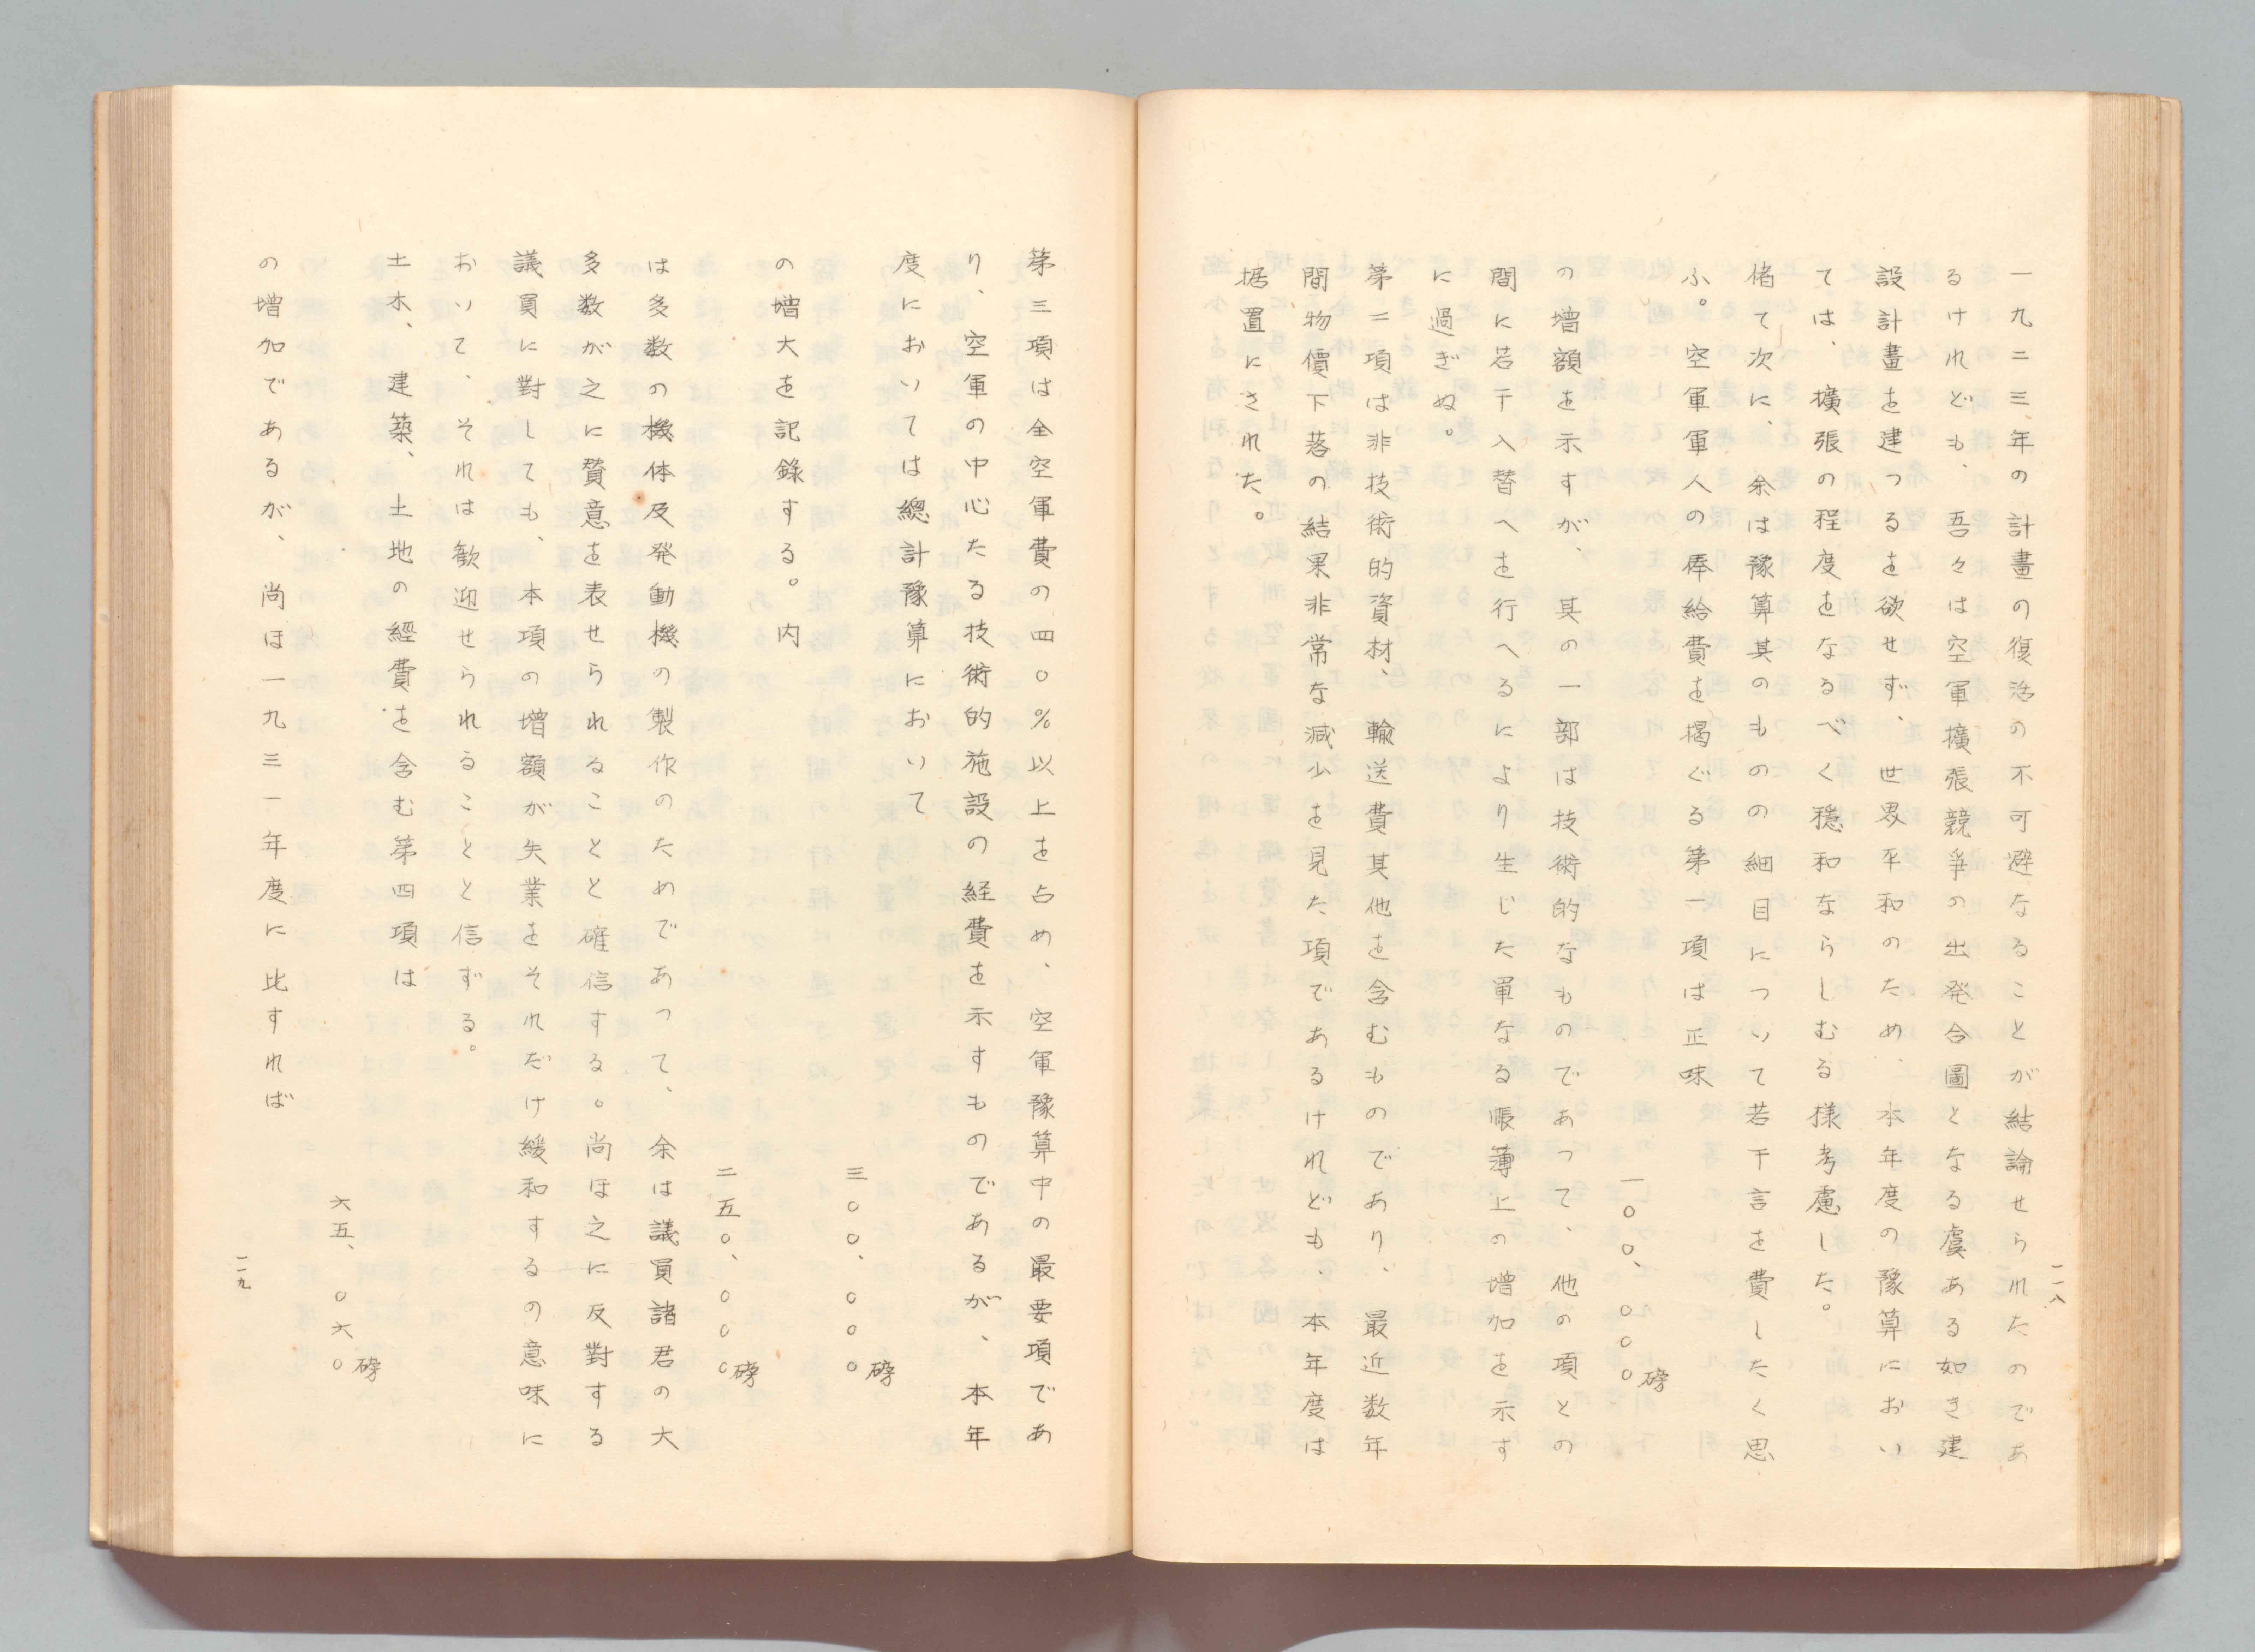 一九二三年の計畫の復活の不可避なることが結論せられたのであ
るけれども、吾々は空軍擴張競爭の出発合圖となる虞ある如き建
設計畫を建つるを欲せず、世界平和のため、本年度の豫算におい
ては、擴張の程度をなるべく穏和ならしむる様考慮した。
偖て次に、余は豫算其のものの細目について若干言を費したく思
ふ。空軍軍人の俸給費を掲ぐる第一項は正味
一〇〇、〇〇〇磅
の増額を示すが、其の一部は技術的なものであって、他の項との
間に若干入替へを行へるにより生じた單なる賬薄上の増加を示す
に過ぎぬ。
第二項は非技術的資材、輸送費其他を含むものであり、最近数年
間物價下落の結果非常な減少を見た項であるけれども、本年度は
据置にされた。
二一八
第三項は全空軍費の四〇％以上を占め、空軍豫算中の最要項であ
り、空軍の中心たる技術的施設の経費を示すものであるが、本年
度においては總計豫算において
三〇〇、〇〇〇磅
の増大を記錄する。内
二五〇、〇〇〇磅
は多数の機体及発動機の製作のためであって、余は議員諸君の大
多数が之に賛意を表せられることと確信する。尚ほ之に反對する
議員に對しても、本項の増額が失業をそれだけ緩和するの意味に
おいて、それは歓迎せられることと信ずる。
土木、建築、土地の經費を含む第四項は
六五、〇六〇磅
の増加であるが、尚ほ一九三一年度に比すれば
二一九